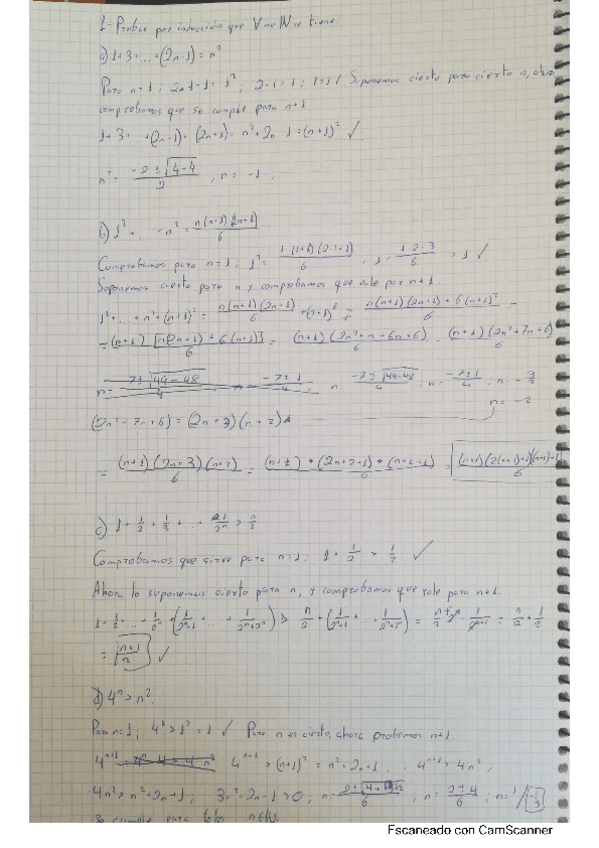 1- Probar por inducción que ∀ n∈ℕ se tiene:
a) 1+3+...+(2n-1) = n²
Para n=1; 2·1-1 = 1²; 2-1=1; 1=1 ✓ Suponemos cierto para cierto n, ahora
comprobamos que se cumple para n+1
1+3+...+(2n-1)+(2n+1) = n²+2n+1 = (n+1)² ✓
n² = (-2±√(4-4))/2, n = -1
b) 1²+...+n² = n(n+1)(2n+1)/6
Comprobamos para n=1; 1² = 1·(1+1)(2·1+1)/6; 1 = 1·2·3/6 = 1 ✓
Suponemos cierto para n y comprobamos que vale para n+1.
1²+...+n²+(n+1)² = n(n+1)(2n+1)/6 + (n+1)² = n(n+1)(2n+1)+6(n+1)²/6 =
= (n+1)[n(2n+1)+6(n+1)]/6 = (n+1)(2n²+n+6n+6)/6 = (n+1)(2n²+7n+6)/6
n = -7±√(49-48)/4; n = -7±1/4; n = -3/2
n = -2
(2n²+7n+6) = (2n+3)(n+2)
= (n+1)(2n+3)(n+2)/6 = (n+1)·(2n+2+1)·(n+1+1)/6 = (n+1)(2(n+1)+1)((n+1)+1)/6
c) 1+1/2+1/3+...+1/2ⁿ > n/2
Comprobamos que sirve para n=1; 1+1/2 > 1/2 ✓
Ahora lo suponemos cierto para n, y comprobamos que vale para n+1.
1+1/2+...+1/2ⁿ+(1/(2ⁿ+1)+...+1/(2ⁿ+2ⁿ)) > n/2+(1/(2ⁿ+1)+...+1/(2ⁿ+2ⁿ)) = n/2+2ⁿ·1/2ⁿ⁺¹ = n/2+1/2
= (n+1)/2 ✓
d) 4ⁿ > n²
Para n=1; 4¹ > 1² = 1 ✓ Para n es cierto, ahora probemos n+1.
4ⁿ⁺¹ 4ⁿ⁺¹ > (n+1)² = n²+2n+1; 4ⁿ⁺¹ > 4n²;
4n² > n²+2n+1; 3n²-2n-1 > 0; n = 2±√(4+12)/6; n = 2±4/6; n = 1/-1/3
Se cumple para todo n∈ℕ.
Escaneado con CamScanner